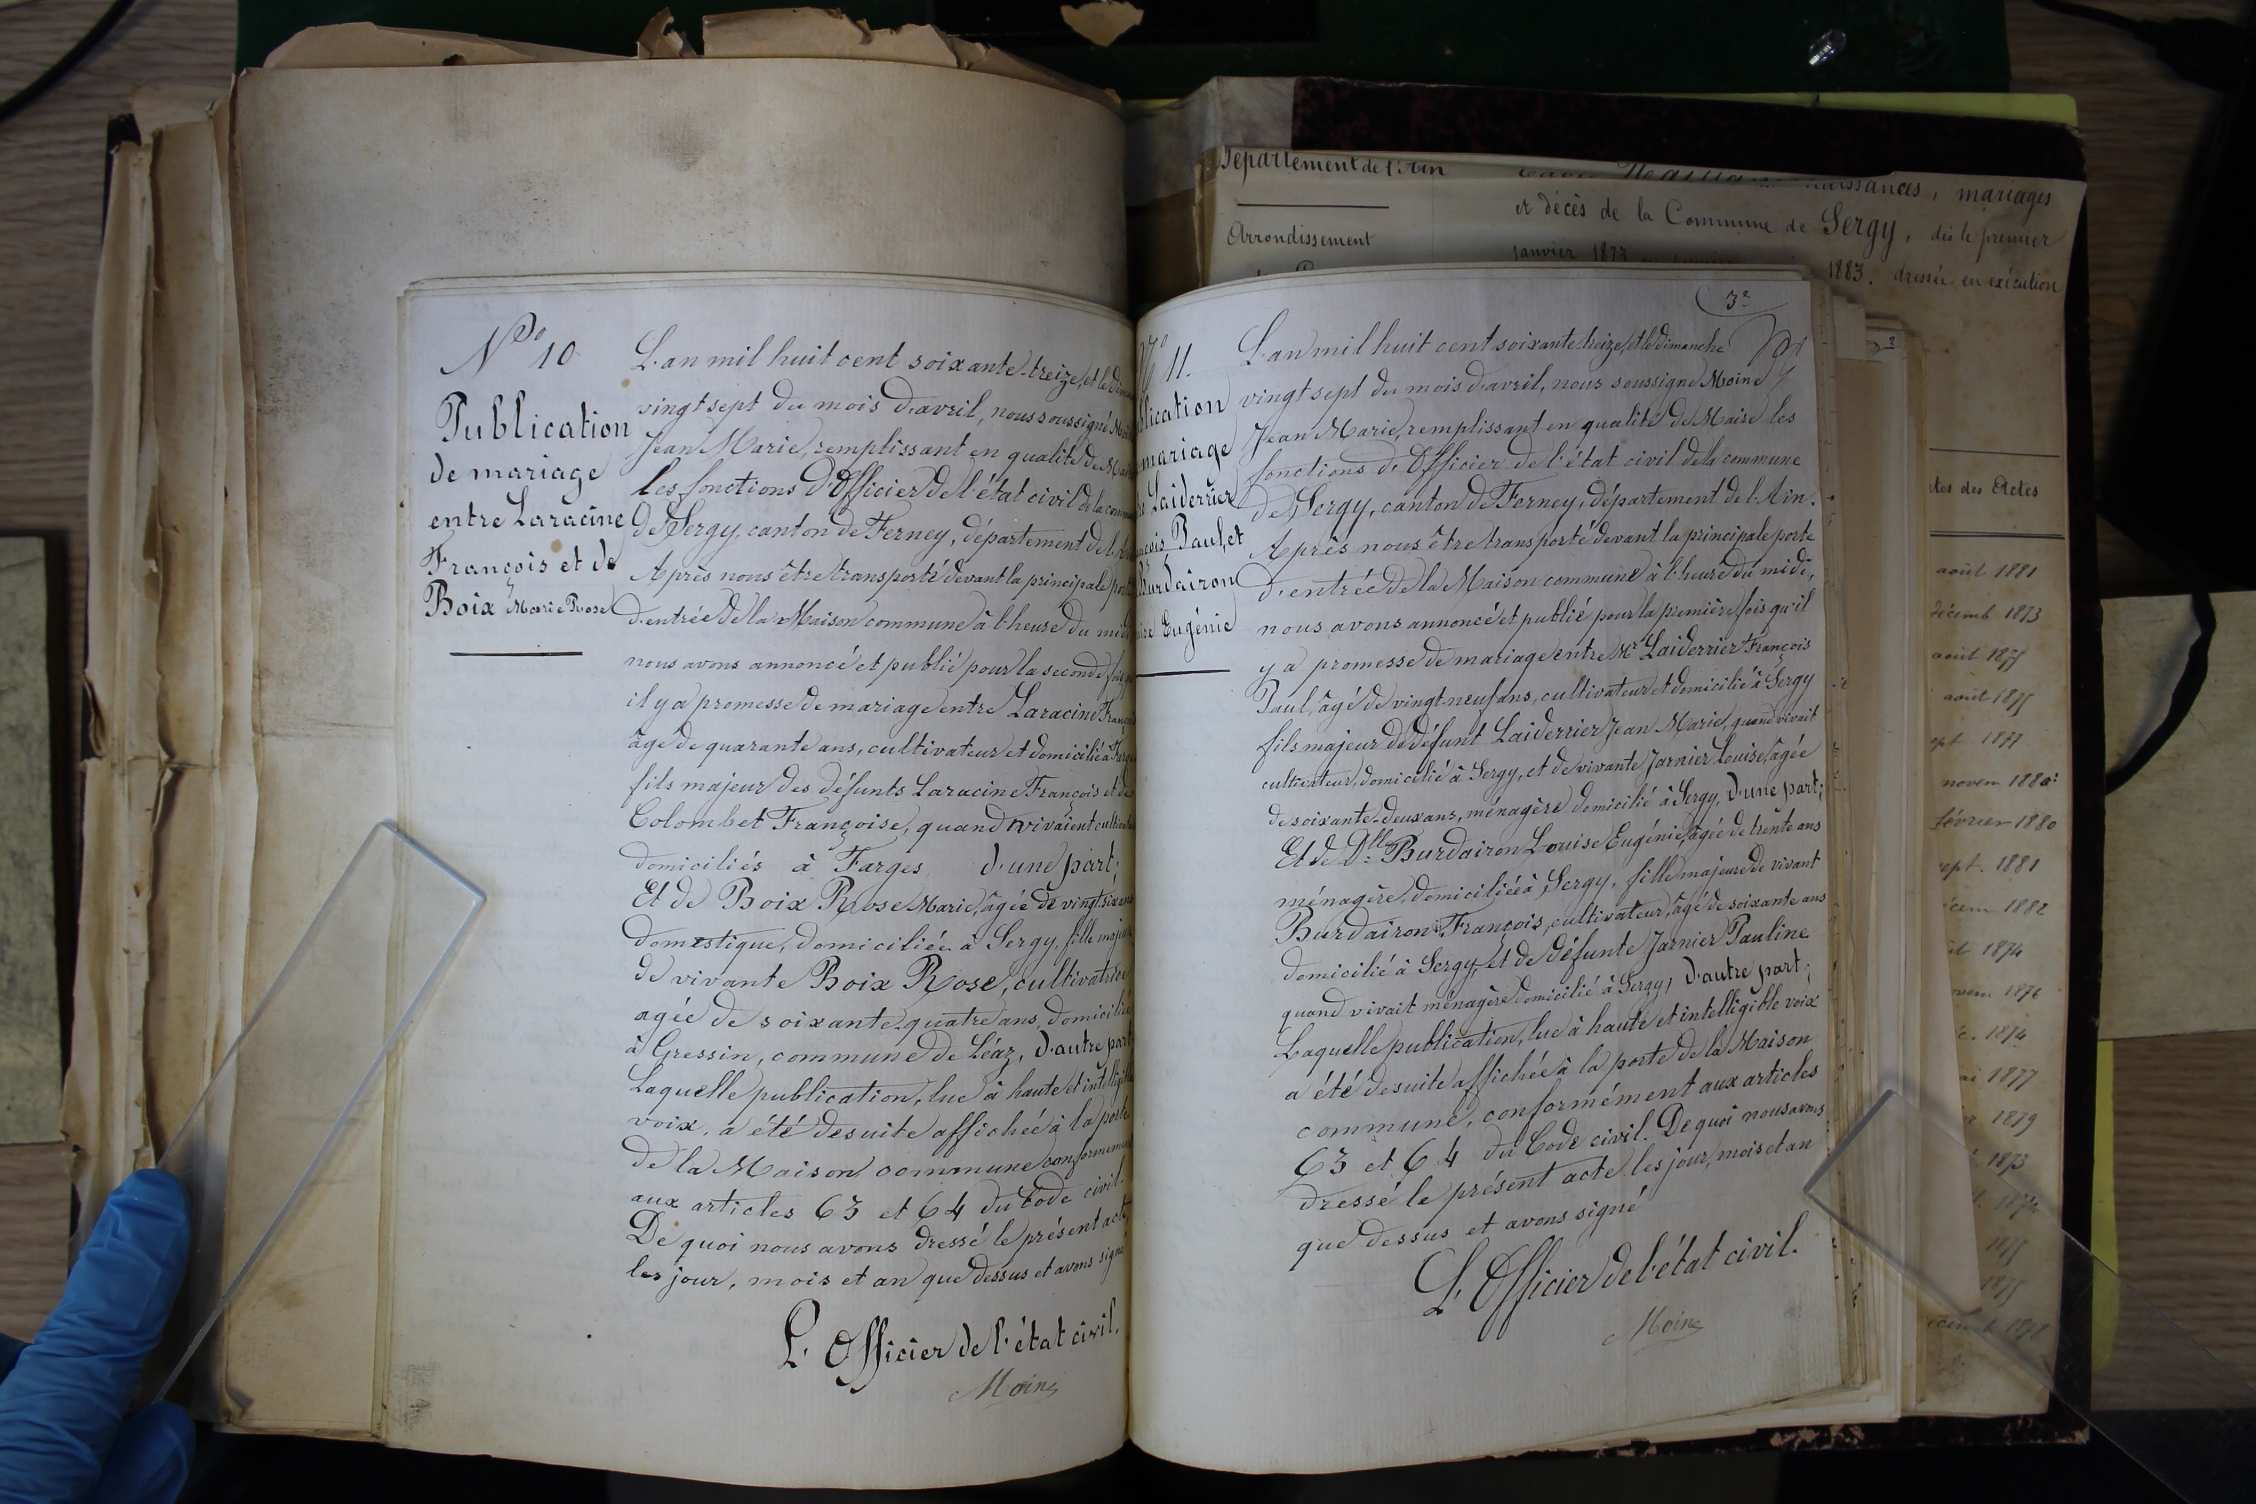 N.o 10
Publication
de mariage
entre Laracine
François et de
Boix Marie Rose
L'an mil huit cent soixante-treize, et le
vingt sept du mois d'avril, nous soussigné
Jean Marie, remplissant en qualité de
les fonctions d'Officier de l'état civil de la
de Sergy, canton de Ferney, département de
Après nous être transporté devant la principale
d'entrée de la Maison commune à l'heure du
nous avons annoncé et publié pour la seconde
il y a promesse de mariage entre Laracine
âgé de quarante ans, cultivateur et domicilié à
fils majeur des défunts Laracine François et de
Colombet Françoise, quand vivaient
domiciliés à Farges d'une part;
Et de Boix Rose Marie, âgée de vingt-six ans
domestique, domiciliée à Sergy, fille
de vivante Boix Rose, cultivatrice
agée de soixante-quatre ans, domiciliée
à Gressin, commune de Léaz, d'autre part
Laquelle publication, lue à haute et
voix, a été desuite affichée à la porte
de la Maison commune
aux articles 63 et 64 du Code civil.
De quoi nous avons dressé le présent acte
les jour, mois et an que dessus et avons signé
L'Officier de l'état civil.
Moine
3
11.
mariage
Laiderrier
Paul, et
Burdairon
Eugénie
L'an mil huit cent soixante-treize, et le dimanche
vingt sept du mois d'avril, nous soussigné Moine
Jean Marie, remplissant en qualité de Maire les
fonctions d'Officier de l'état civil de la commune
de Sergy, canton de Ferney, département de l'Ain.
Après nous être transporté devant la principale porte
d'entrée de la Maison commune à l'heure du midi,
nous avons annoncé et publié pour la première fois qu'il
y a promesse de mariage entre Mr Laiderrier François
Paul, âgé de vingt-neuf ans, cultivateur et domicilié à Sergy
fils majeur de défunt Laiderrier Jean Marie, quand vivait
cultivateur, domicilié à Sergy, et de vivante Jarnier Louise, âgée
de soixante-deux ans, ménagère domicilié à Sergy, d'une part;
Et de Dlle Burdairon Louise Eugénie, âgée de trente ans
ménagère, domiciliée à Sergy, fille majeure de vivant
Burdairon François, cultivateur, âgé de soixante ans
domicilié à Sergy, et de défunte Jarnier Pauline
quand vivait ménagère domicilié à Sergy, d'autre part;
Laquelle publication, lue à haute et intelligible voix
a été desuite affichée à la porte de la Maison
commune, conformément aux articles
63 et 64 du Code civil. De quoi nous avons
dressé le présent acte les jour, mois et an
que dessus et avons signé
L'Officier de l'état civil.
Moine
Département de l'Ain
Arrondissement
naissances, mariages
et décès de la Commune de Sergy, dès le premier
janvier 1873
1883. dressée en exécution
des Actes
août 1881
décemb 1873
août 1875
août 1875
1877
novem 1880
février 1880
sept. 1881
1882
1874
1876
1874
1877
1879
1873
1875
1875